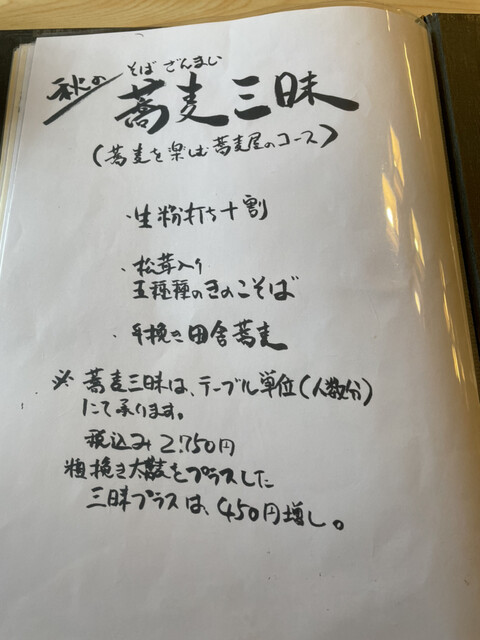 秋の
そば ざんまい
蕎麦三昧
(蕎麦を楽しむ蕎麦屋のコース)
・生粉打ち十割
・松茸入り
五種種のきのこそば
・手挽き田舎蕎麦
※ 蕎麦三昧は、テーブル単位(人数分)
にて承ります。
税込み2.750円
粗挽き太麺をプラスした
三昧プラスは、450円増し。